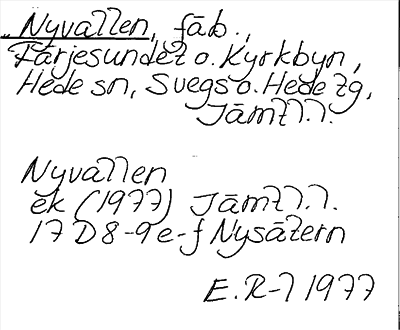 Nyvallen, fäb.,
Färjesundet o. Kyrkbyn,
Hede sn, Svegs o. Hede tg,
Jämtl.l.
Nyvallen
ek (1977) Jämtl.l.
17D8-9e-f Nysätern
E.R-l 1977